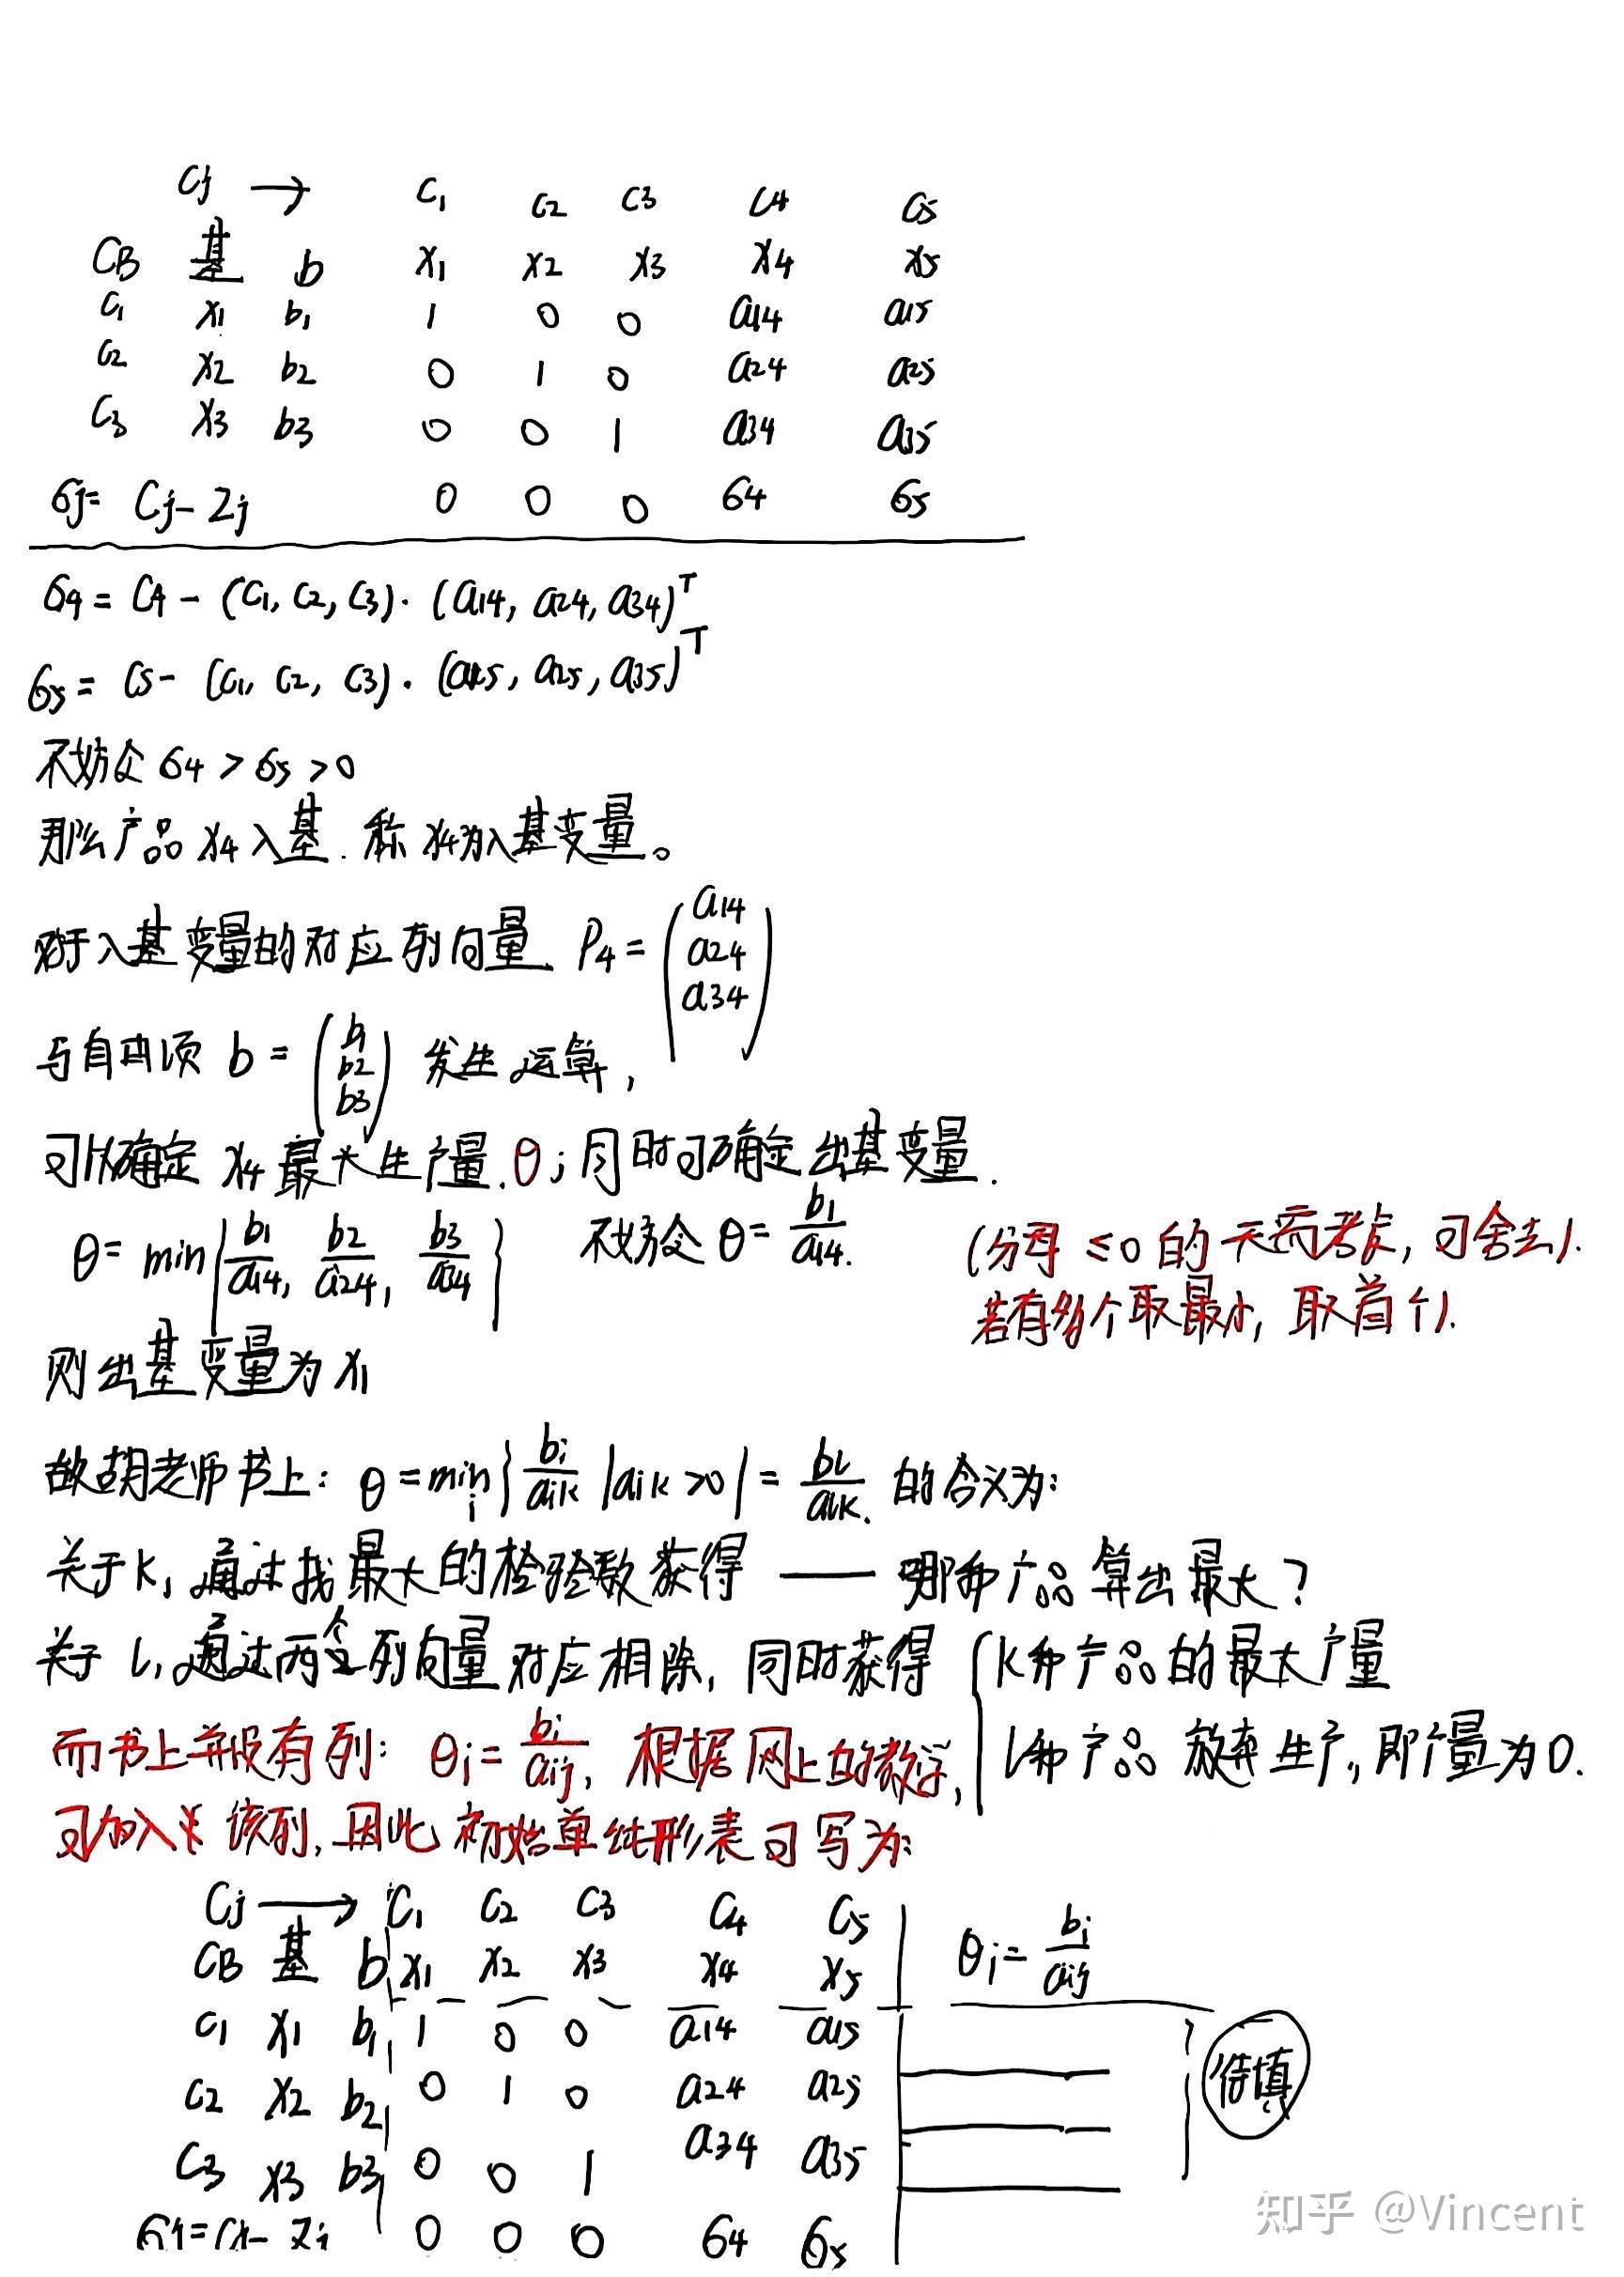 Cj → C1 C2 C3 C4 C5
CB 基 b x1 x2 x3 x4 x5
C1 x1 b1 1 0 0 a14 a15
C2 x2 b2 0 1 0 a24 a25
C3 x3 b3 0 0 1 a34 a35
σj= Cj-Zj 0 0 0 σ4 σ5
σ4 = C4 - (C1, C2, C3)·(a14, a24, a34)^T
σ5 = C5 - (C1, C2, C3)·(a15, a25, a35)^T
不妨令 σ4 > σ5 > 0
那么产品 x4 入基. 称 x4为入基变量。
对于入基变量的对应列向量 P4 = (a14 a24 a34)
与自由项 b = (b1 b2 b3) 发生运算,
可以确定 x4 最大生产量.θ; 同时可确定出基变量.
θ = min{b1/a14, b2/a24, b3/a34} 不妨令 θ = b1/a14. (分母 ≤0 的 无需考虑, 可舍去).
若有多个取最小, 取首个).
则出基变量为 x1
故胡老师书上: θ = min_i {bi/aik | aik >0} = bl/alk. 的含义为:
关于 k, 通过找最大的检验数获得 —— 哪种产品算出最大?
关于 l, 通过两个列向量对应相除, 同时获得 { k种产品的最大产量
l种产品 放弃生产, 即产量为0.
而书上并没有列: θi = bi/aij, 根据网上的教学,
可加入 该列, 因此 初始单纯形表可写为:
Cj → C1 C2 C3 C4 C5
CB 基 b x1 x2 x3 x4 x5 θi = bi/aij
C1 x1 b1 1 0 0 a14 a15
C2 x2 b2 0 1 0 a24 a25 待填
C3 x3 b3 0 0 1 a34 a35
σj=Cj-Zj 0 0 0 σ4 σ5
知乎 @Vincent